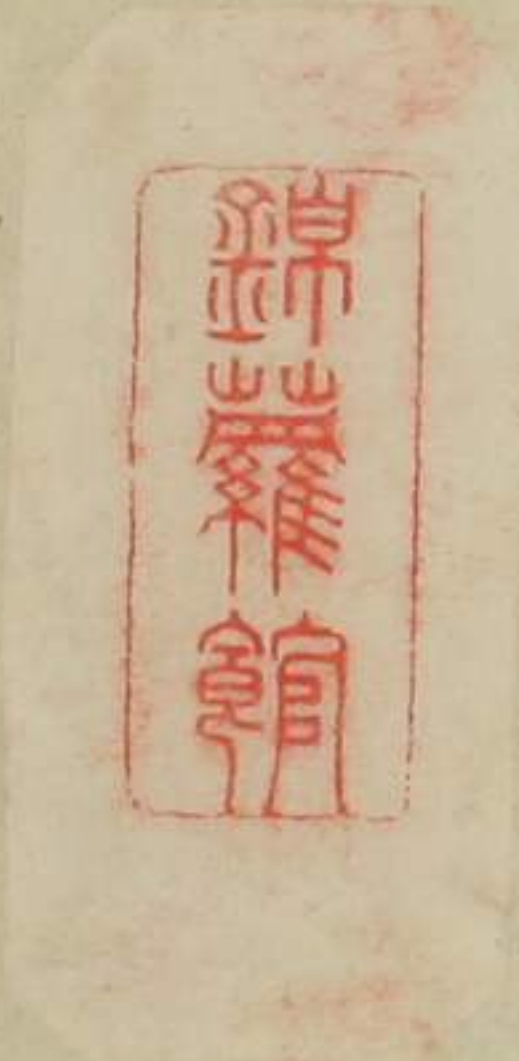 錦蘿館